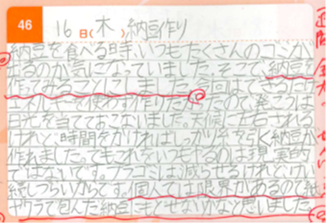 46
16日(木) 納豆作り
納豆を食べる時、いつもたくさんのゴミが
出るのが気になっていました。そこで、納豆を
作ってみることにしました。今回はできるだけ
エネルギーを使わず作りたかったので、発こうは
日光を当てておこないました。お天気に左右される
けれど、時間をかければしっかり糸を引く納豆が
作れました。でもこれをいつもやるのは現実的
ではないです。プラゴミは減らせるけれど、
続しづらいからです。個人では限界があるので、紙
やワラで包んだ納豆をと思いました。